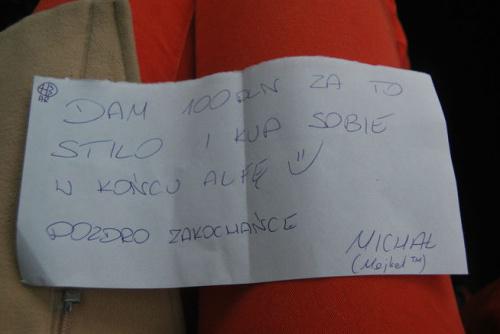 DAM 100 PLN ZA TO
STILO I KUP SOBIE
W KOŃCU ALFĘ :)
POZDRO ZAKOCHAŃCE
MICHAŁ
(Mejkel™)